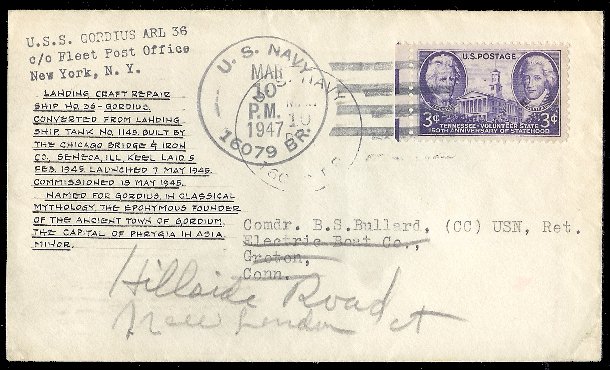 U.S.S. GORDIUS ARL 36
c/o Fleet Post Office
New York, N. Y.
LANDING CRAFT REPAIR
SHIP NO. 36 - GORDIUS.
CONVERTED FROM LANDING
SHIP TANK NO. 1145. BUILT BY
THE CHICAGO BRIDGE & IRON
CO., SENECA, ILL. KEEL LAID 5
FEB. 1945. LAUNCHED 7 MAY 1945.
COMMISSIONED 18 MAY 1945.
NAMED FOR GORDIUS, IN CLASSICAL
MYTHOLOGY, THE EPONYMOUS FOUNDER
OF THE ANCIENT TOWN OF GORDIUM,
THE CAPITAL OF PHRYGIA IN ASIA
MINOR.
U. S. NAVY
MAR
10
P.M.
1947
16079 BR.
U.S. POSTAGE
3¢ 3¢
TENNESSEE - VOLUNTEER STATE
150TH ANNIVERSARY OF STATEHOOD
Comdr. B.S.Bullard, (CC) USN, Ret.
Electric Boat Co.,
Groton,
Conn.
Hillside Road
New London Ct